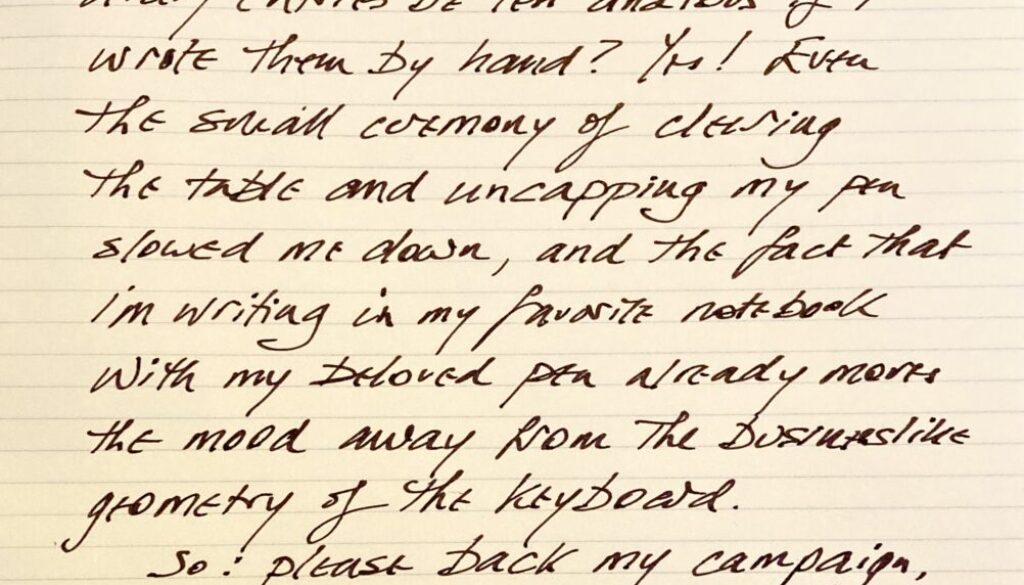 diary entries be less anxious if I
wrote them by hand? Yes! Even
the small ceremony of clearing
the table and uncapping my pen
slowed me down, and the fact that
I'm writing in my favorite notebook
with my beloved pen already moves
the mood away from the businesslike
geometry of the keyboard.
So: please back my campaign,